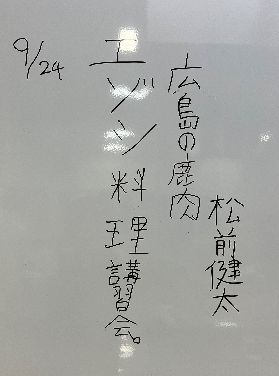 松前健太
広島の鹿肉
エゾシ料理講習会。
9/24